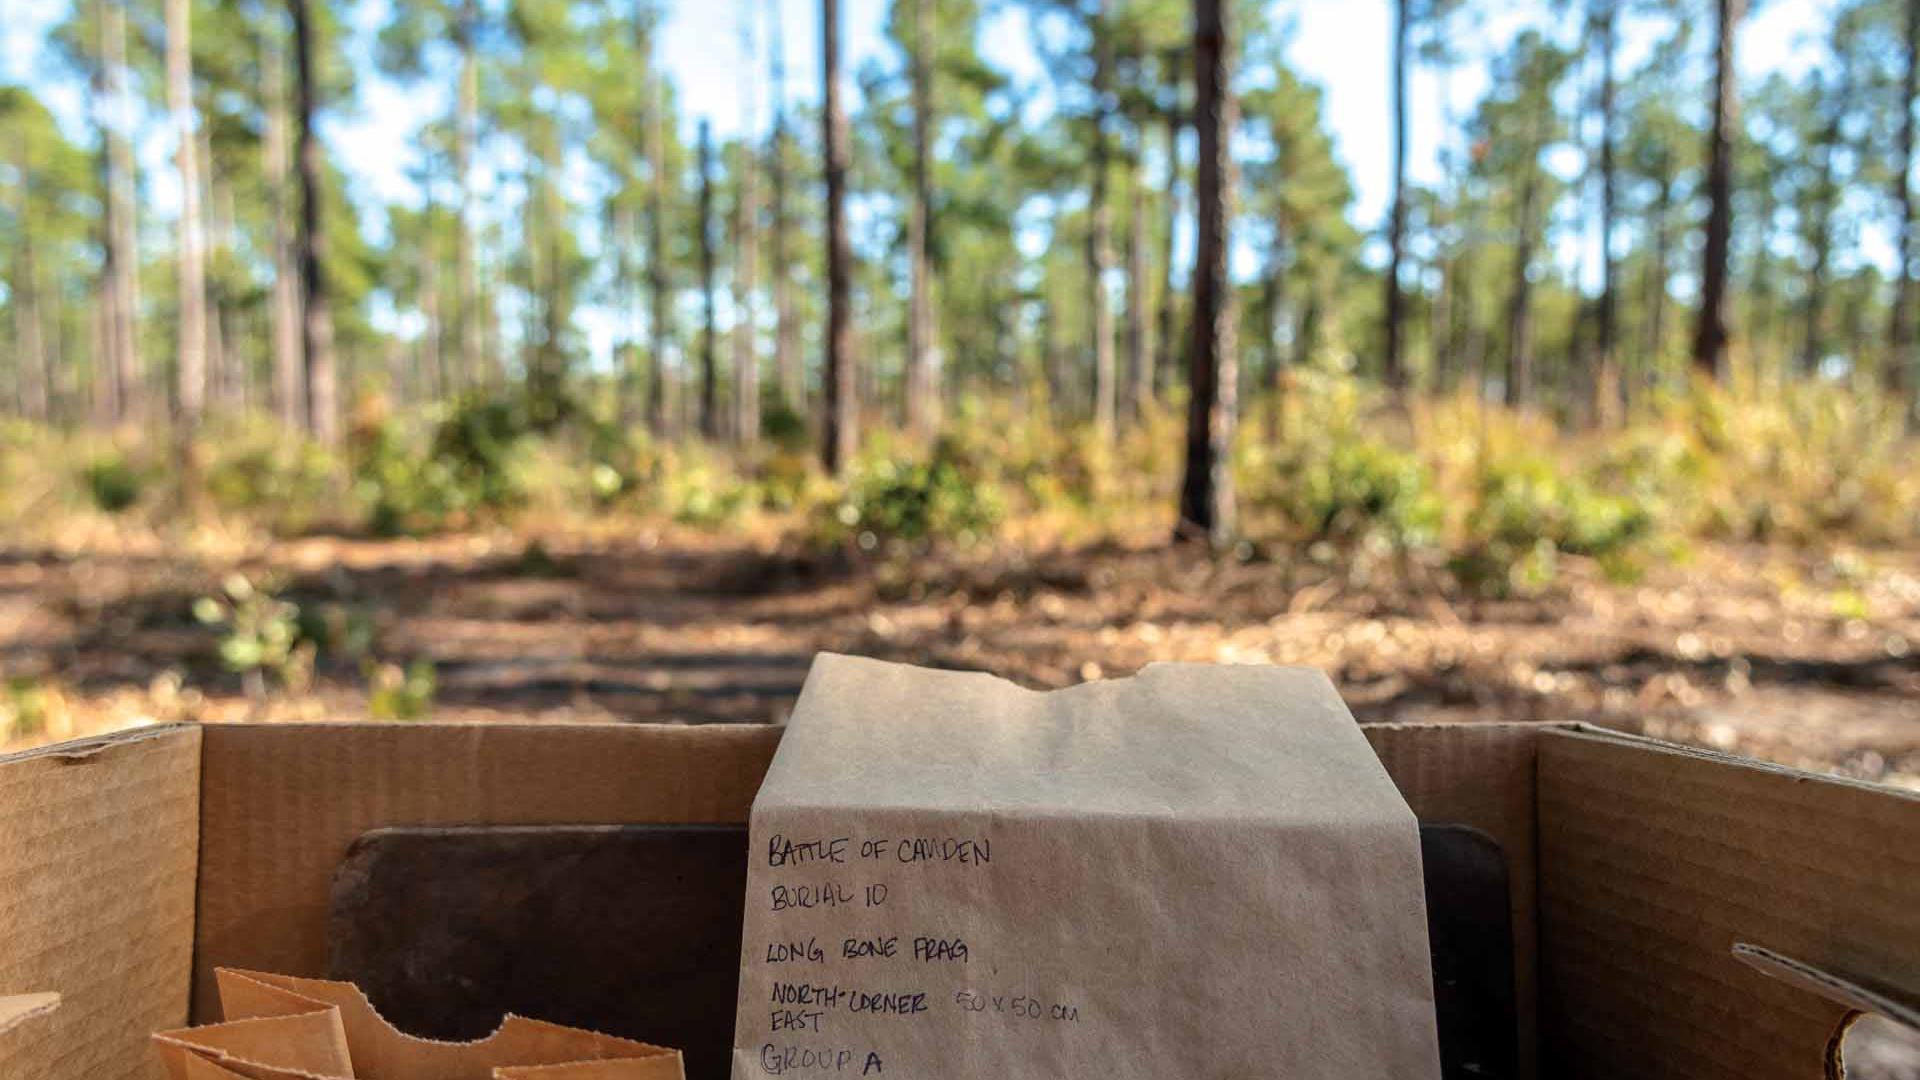 BATTLE OF CAMDEN
BURIAL 10
LONG BONE FRAG
NORTH-CORNER 50 X 50 CM
EAST
GROUP A